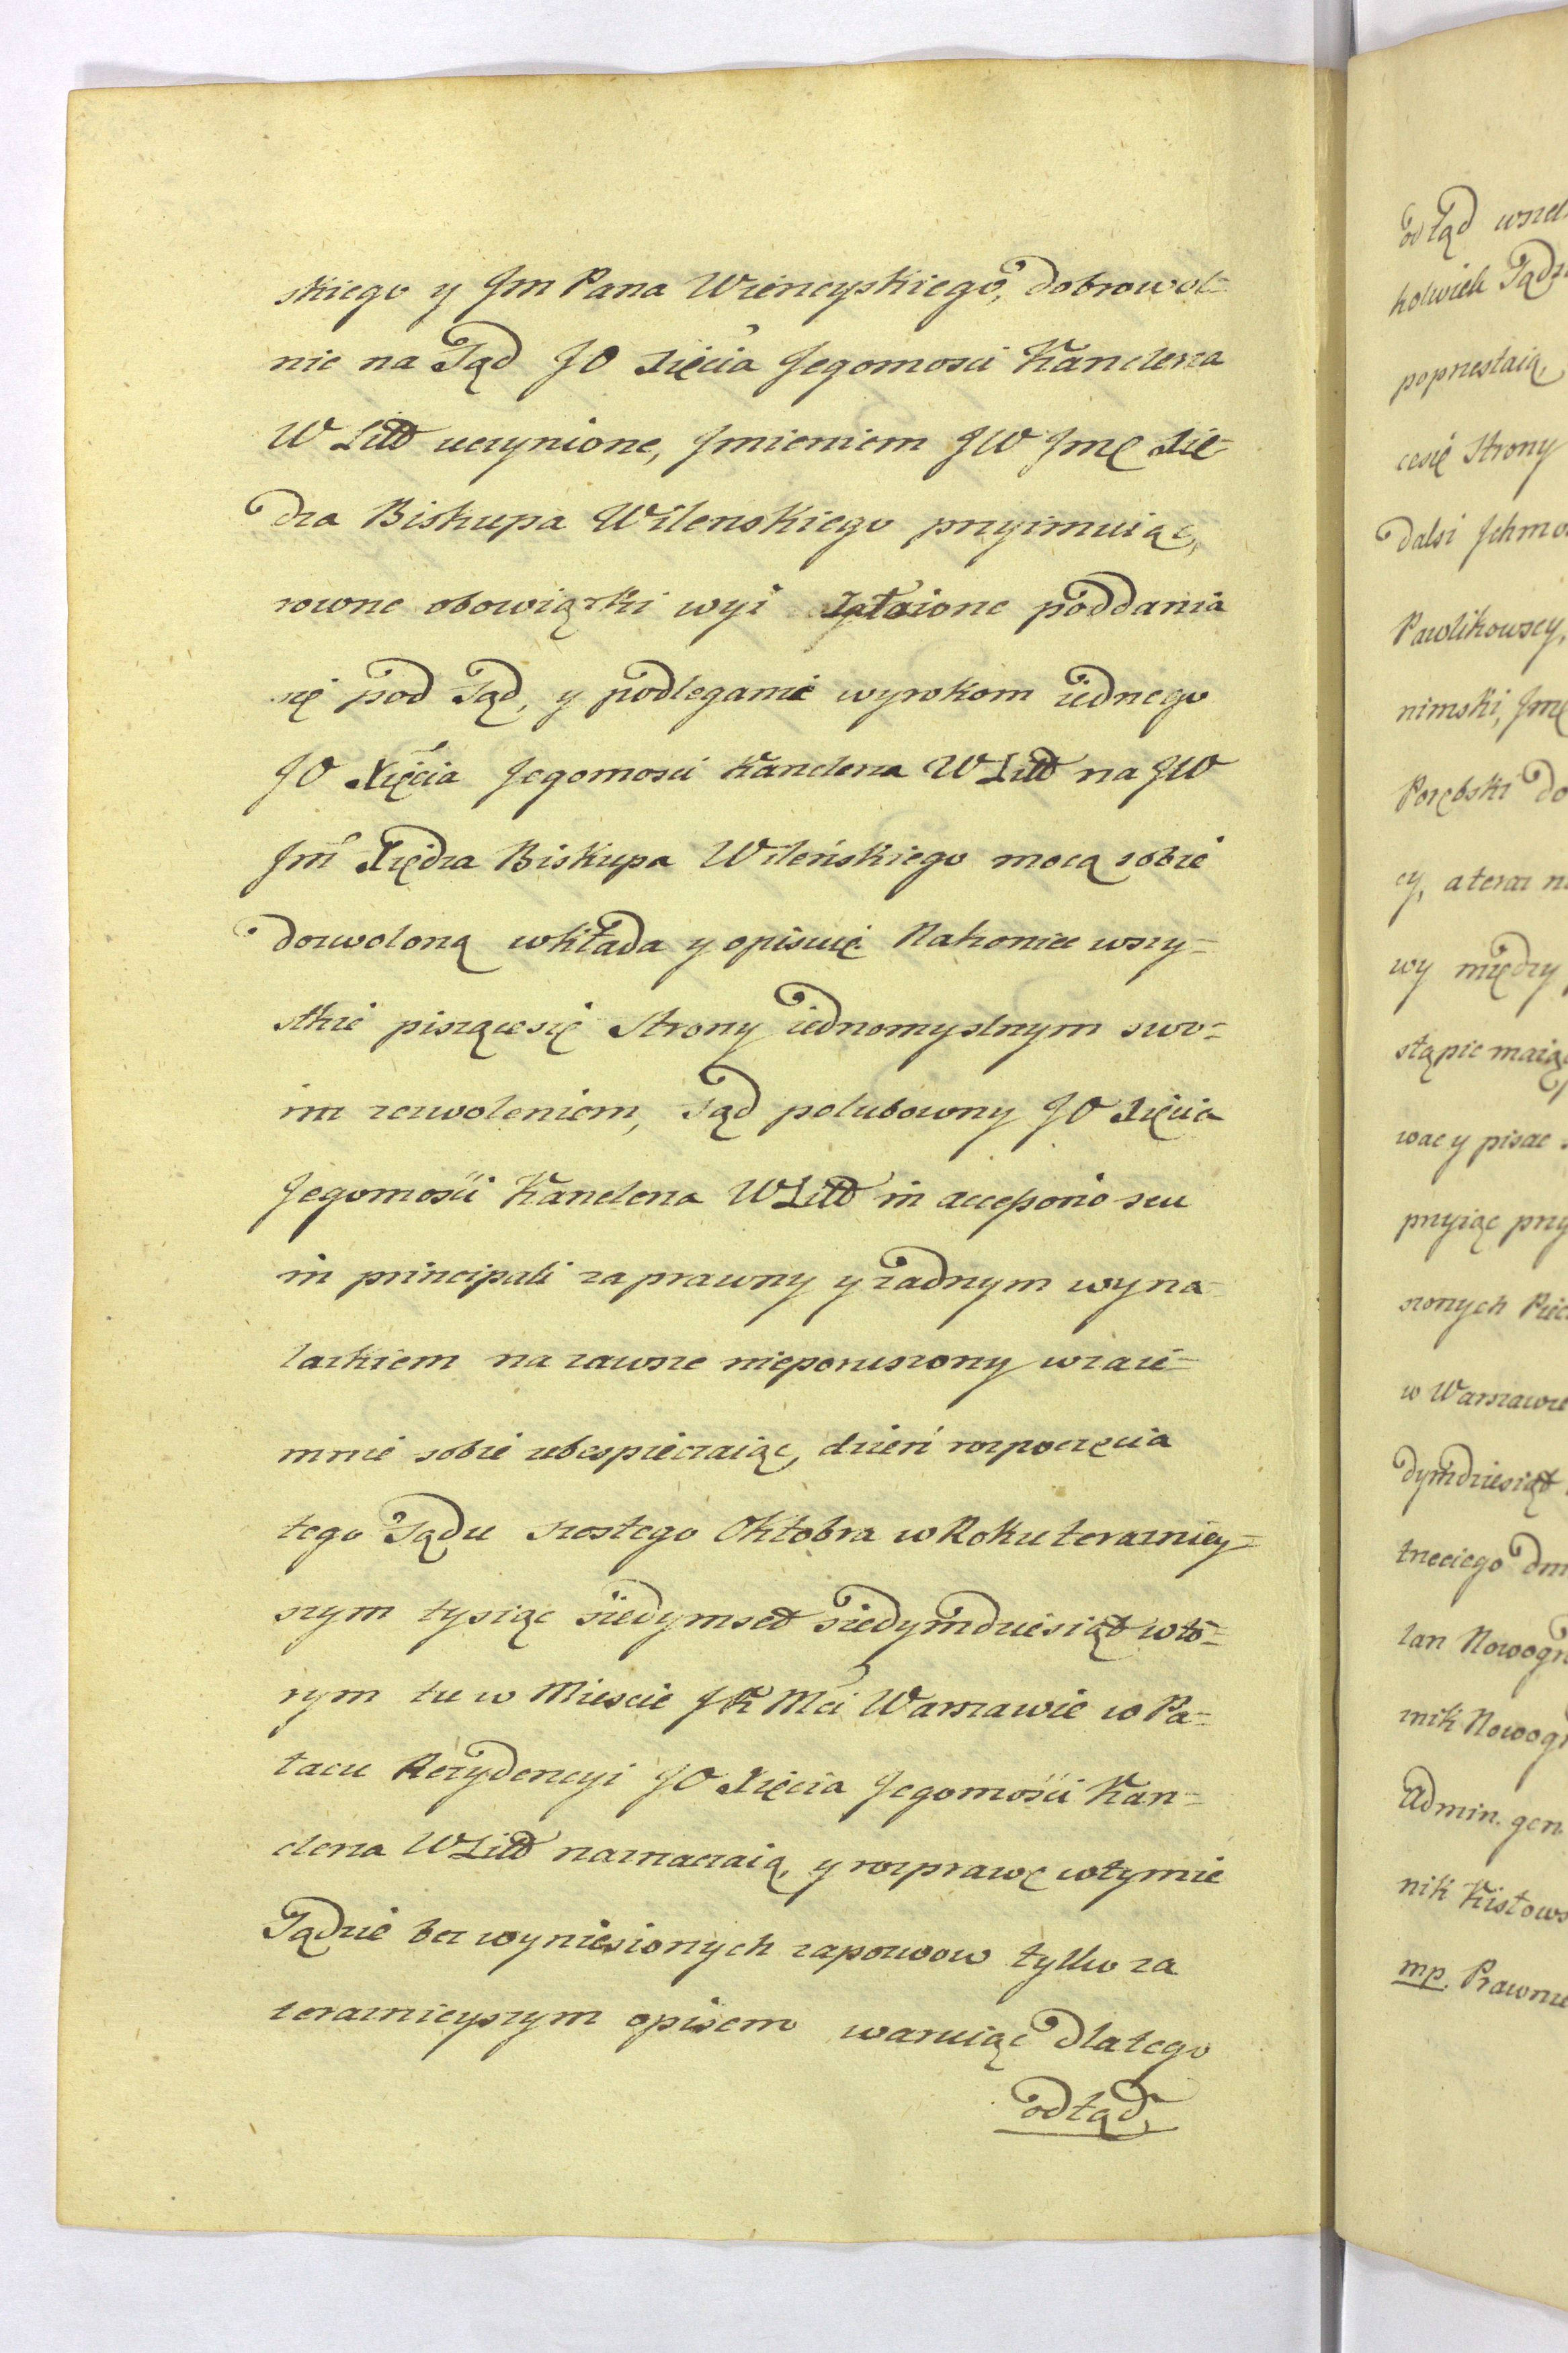 skiego y Jm Pana Wiencyskiego, dobrowol=
nie na Sąd JO Xięcia Jegomosci Kanclerza
W Litt uczynione, Jmieniem JW Jmę Xię=
dza Biskupa Wilenskiego przyimuiąc,
rowne obowiązki wyi poddania
się pod Sąd, y podleganie wyrokom iednego
JO Xięcia Jegomosci Kanclerza W Litt na JW
Jmć Xiędza Biskupa Wileńskiego mocą sobie
dozwoloną wkłada y opisuie. Nakoniec wszy=
stkie pisząćesię Strony iednomyslnym swo=
im zezwoleniem, Sąd polubowny JO Xięcia
Jegomości Kanclerza W Litt in accessorio seu
in principali za prawny y żadnym wyna=
lazkiem na zawsze nieporuszony wzaie=
mnie sobie ubespieczaiąc, dzień rozpoczęcia
tego Sądu szostego Oktobra w Roku terazniey=
szym tysiąc siedymset siedymdziesiąt wto=
rym tu w Miescie JK Mci Warszawie w Pa=
łacu Rezydencyi JO Xięcia Jegomości Kan=
clerza W Litt naznaczaią, y rozprawę w tymże
Sądzie bez wyniesionych zapozwow tylko za
teraznieyszym opisem waruiąc dlatego
odtąd,
odtąd wszel
kolwiek Sądz
poprzestaią,
cesię Strony
dalsi Jchmo
Pawlikowscy,
nimski, Jmę
Porębski do
cy, a teraz n
wy między
stąpic maiąc
wac y pisac
przyiąc przy
szonych Piec
w Warszawie
dymdziesiąt
trzeciego dn
lan Nowogr
mik Nowogr
Admin. gen.
nik Kistows
mp. Prawni